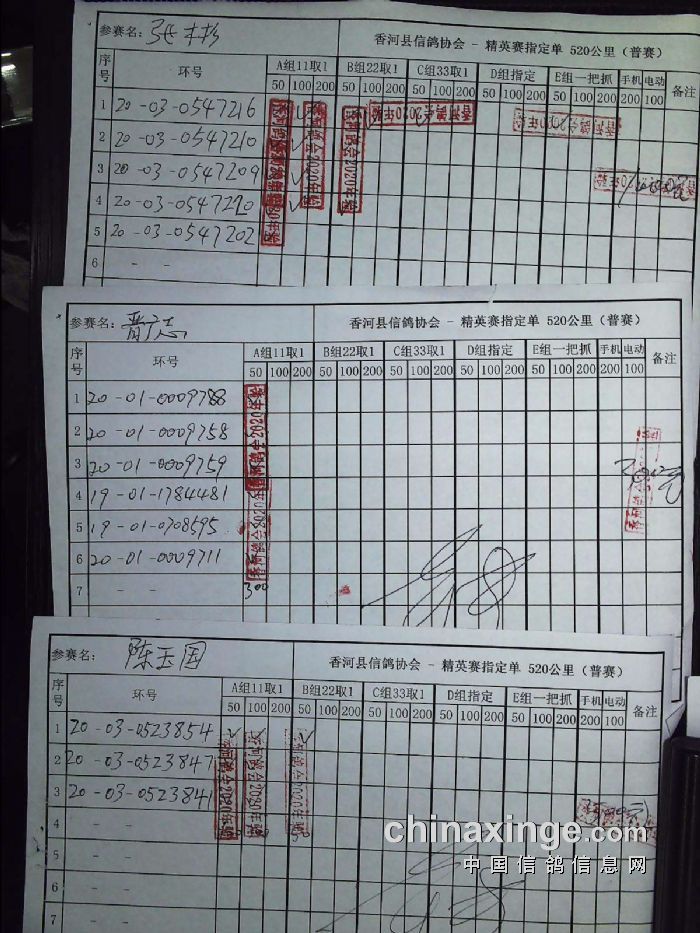 参赛名: 张
香河县信鸽协会 - 精英赛指定单 520公里（普赛）
序号 环号 A组11取1 B组22取1 C组33取1 D组指定 E组一把抓 手机 电动 备注
50 100 200 50 100 200 50 100 200 50 100 200 50 100 200 200 100
1 20-03-0547216
2 20-03-0547210
3 20-03-0547209
4 20-03-0547220
5 20-03-0547202
6 - -
参赛名:
香河县信鸽协会 - 精英赛指定单 520公里（普赛）
序号 环号 A组11取1 B组22取1 C组33取1 D组指定 E组一把抓 手机 电动 备注
50 100 200 50 100 200 50 100 200 50 100 200 50 100 200 200 100
1 20-01-0009788
2 20-01-0009758
3 20-01-0009759
4 19-01-1784481
5 19-01-0708595
6 20-01-0009711
7 - - 300
参赛名: 陈玉国
香河县信鸽协会 - 精英赛指定单 520公里（普赛）
序号 环号 A组11取1 B组22取1 C组33取1 D组指定 E组一把抓 手机 电动 备注
50 100 200 50 100 200 50 100 200 50 100 200 50 100 200 200 100
1 20-03-0523854
2 20-03-0523847
3 20-03-0523841
4 - -
5 - -
6 - -
7 - -
chinaxinge.com
中国信鸽信息网